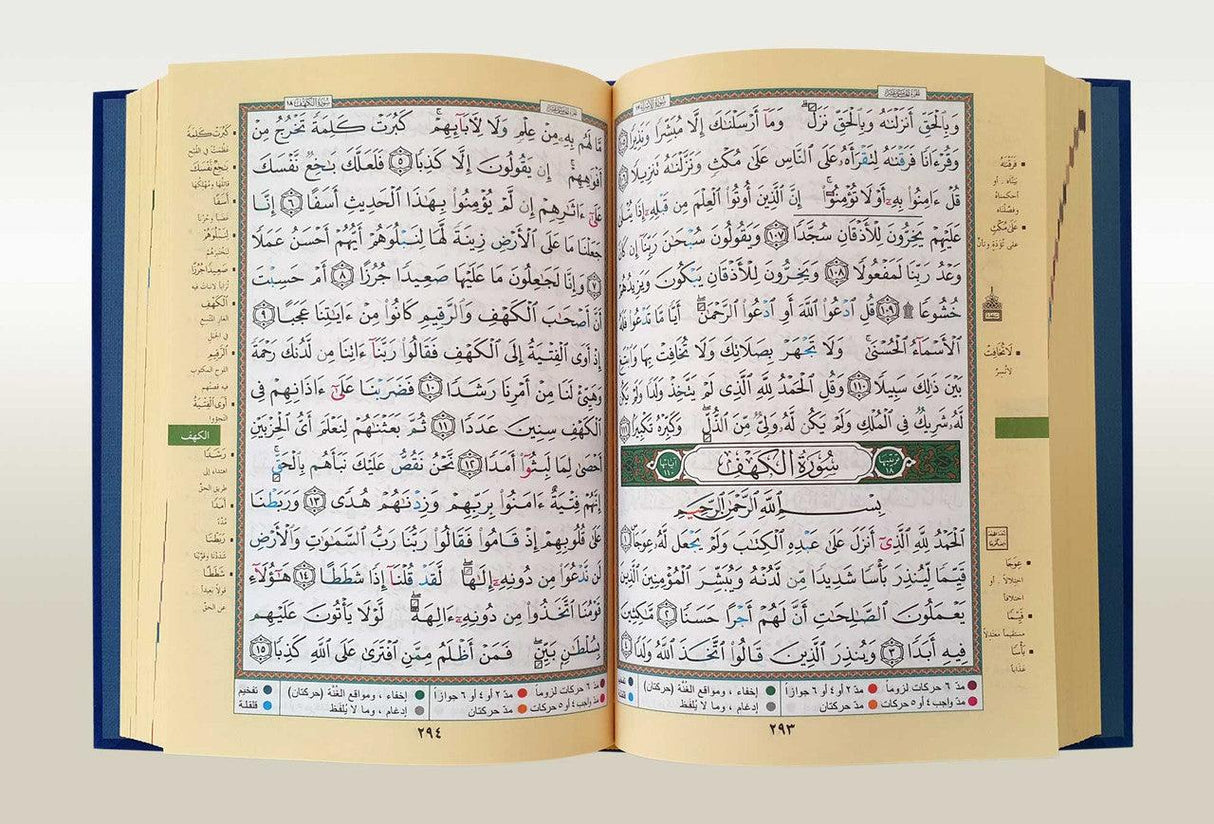 وَبِٱلْحَقِّ أَنزَلْنَٰهُ وَبِٱلْحَقِّ نَزَلَ ۗ وَمَآ أَرْسَلْنَٰكَ إِلَّا مُبَشِّرًا وَنَذِيرًا
وَقُرْءَانًا فَرَقْنَٰهُ لِتَقْرَأَهُۥ عَلَى ٱلنَّاسِ عَلَىٰ مُكْثٍ وَنَزَّلْنَٰهُ تَنزِيلًا
قُلْ ءَامِنُوا۟ بِهِۦٓ أَوْ لَا تُؤْمِنُوٓا۟ ۚ إِنَّ ٱلَّذِينَ أُوتُوا۟ ٱلْعِلْمَ مِن قَبْلِهِۦٓ إِذَا يُتْلَىٰ
عَلَيْهِمْ يَخِرُّونَ لِلْأَذْقَانِ سُجَّدًا ١٠٧ وَيَقُولُونَ سُبْحَٰنَ رَبِّنَآ إِن كَانَ
وَعْدُ رَبِّنَا لَمَفْعُولًا ١٠٨ وَيَخِرُّونَ لِلْأَذْقَانِ يَبْكُونَ وَيَزِيدُهُمْ
خُشُوعًا ۩ ١٠٩ قُلِ ٱدْعُوا۟ ٱللَّهَ أَوِ ٱدْعُوا۟ ٱلرَّحْمَٰنَ ۖ أَيًّا مَّا تَدْعُوا۟ فَلَهُ
ٱلْأَسْمَآءُ ٱلْحُسْنَىٰ ۚ وَلَا تَجْهَرْ بِصَلَاتِكَ وَلَا تُخَافِتْ بِهَا وَٱبْتَغِ
بَيْنَ ذَٰلِكَ سَبِيلًا ١١٠ وَقُلِ ٱلْحَمْدُ لِلَّهِ ٱلَّذِى لَمْ يَتَّخِذْ وَلَدًا وَلَمْ يَكُن
لَّهُۥ شَرِيكٌ فِى ٱلْمُلْكِ وَلَمْ يَكُن لَّهُۥ وَلِىٌّ مِّنَ ٱلذُّلِّ ۖ وَكَبِّرْهُ تَكْبِيرًۢا
ترتيبها ١٨ سُورَةُ الْكَهْفِ آياتها ١١٠
بِسْمِ ٱللَّهِ ٱلرَّحْمَٰنِ ٱلرَّحِيمِ
ٱلْحَمْدُ لِلَّهِ ٱلَّذِىٓ أَنزَلَ عَلَىٰ عَبْدِهِ ٱلْكِتَٰبَ وَلَمْ يَجْعَل لَّهُۥ عِوَجَا ١
قَيِّمًا لِّيُنذِرَ بَأْسًا شَدِيدًا مِّن لَّدُنْهُ وَيُبَشِّرَ ٱلْمُؤْمِنِينَ ٱلَّذِينَ
يَعْمَلُونَ ٱلصَّٰلِحَٰتِ أَنَّ لَهُمْ أَجْرًا حَسَنًا ٢ مَّٰكِثِينَ
فِيهِ أَبَدًا ٣ وَيُنذِرَ ٱلَّذِينَ قَالُوا۟ ٱتَّخَذَ ٱللَّهُ وَلَدًا ٤
فَرَقْنَٰهُ
بيّنّاه، أو
أحكمناه
وفصّلناه
عَلَىٰ مُكْثٍ
على تُؤَدَةٍ وتأنٍّ
لَا تُخَافِتْ
لا تُسِرَّ
عِوَجَا
اختلالاً، أو
اختلافاً
قَيِّمًا
مستقيماً معتدلاً
بَأْسًا
عَذَاباً
مدّ ٦ حركات لزوماً مدّ ٢ أو ٤ أو ٦ جوازاً إخفاء ، ومواقع الغُنَّة (حركتان)
مدّ واجب ٤ أو ٥ حركات مدّ حركتان إدغام ، وما لا يُلفَظ
٢٩٣
سُورَةُ الكَهْف ١٨
مَّا لَهُم بِهِۦ مِنْ عِلْمٍ وَلَا لِـَٔابَآئِهِمْ ۚ كَبُرَتْ كَلِمَةً تَخْرُجُ مِنْ
أَفْوَٰهِهِمْ ۚ إِن يَقُولُونَ إِلَّا كَذِبًا ٥ فَلَعَلَّكَ بَٰخِعٌ نَّفْسَكَ
عَلَىٰٓ ءَاثَٰرِهِمْ إِن لَّمْ يُؤْمِنُوا۟ بِهَٰذَا ٱلْحَدِيثِ أَسَفًا ٦ إِنَّا
جَعَلْنَا مَا عَلَى ٱلْأَرْضِ زِينَةً لَّهَا لِنَبْلُوَهُمْ أَيُّهُمْ أَحْسَنُ عَمَلًا
٧ وَإِنَّا لَجَٰعِلُونَ مَا عَلَيْهَا صَعِيدًا جُرُزًا ٨ أَمْ حَسِبْتَ
أَنَّ أَصْحَٰبَ ٱلْكَهْفِ وَٱلرَّقِيمِ كَانُوا۟ مِنْ ءَايَٰتِنَا عَجَبًا ٩
إِذْ أَوَى ٱلْفِتْيَةُ إِلَى ٱلْكَهْفِ فَقَالُوا۟ رَبَّنَآ ءَاتِنَا مِن لَّدُنكَ رَحْمَةً
وَهَيِّئْ لَنَا مِنْ أَمْرِنَا رَشَدًا ١٠ فَضَرَبْنَا عَلَىٰٓ ءَاذَانِهِمْ فِى
ٱلْكَهْفِ سِنِينَ عَدَدًا ١١ ثُمَّ بَعَثْنَٰهُمْ لِنَعْلَمَ أَىُّ ٱلْحِزْبَيْنِ
أَحْصَىٰ لِمَا لَبِثُوٓا۟ أَمَدًا ١٢ نَّحْنُ نَقُصُّ عَلَيْكَ نَبَأَهُم بِٱلْحَقِّ ۚ
إِنَّهُمْ فِتْيَةٌ ءَامَنُوا۟ بِرَبِّهِمْ وَزِدْنَٰهُمْ هُدًى ١٣ وَرَبَطْنَا
عَلَىٰ قُلُوبِهِمْ إِذْ قَامُوا۟ فَقَالُوا۟ رَبُّنَا رَبُّ ٱلسَّمَٰوَٰتِ وَٱلْأَرْضِ
لَن نَّدْعُوَا۟ مِن دُونِهِۦٓ إِلَٰهًا ۖ لَّقَدْ قُلْنَآ إِذًا شَطَطًا ١٤ هَٰٓؤُلَآءِ
قَوْمُنَا ٱتَّخَذُوا۟ مِن دُونِهِۦٓ ءَالِهَةً ۖ لَّوْلَا يَأْتُونَ عَلَيْهِم
بِسُلْطَٰنٍۭ بَيِّنٍ ۖ فَمَنْ أَظْلَمُ مِمَّنِ ٱفْتَرَىٰ عَلَى ٱللَّهِ كَذِبًا ١٥
كَبُرَتْ كَلِمَةً
عظُمَتْ في القُبْح
بَٰخِعٌ نَّفْسَكَ
قاتلُها ومُهْلِكُها
أَسَفًا
غضَباً وحُزْناً
لِنَبْلُوَهُمْ
لنختبرهم
صَعِيدًا جُرُزًا
تراباً لا نبات فيه
ٱلْكَهْفِ
الغار المتّسع
في الجبل
ٱلرَّقِيمِ
اللوح المكتوب
فيه قصتهم
أَوَى ٱلْفِتْيَةُ
التجؤوا
الكهف
رَشَدًا
اهتداء إلى
طريق الحق
أَمَدًا
مُدّة
رَبَطْنَا
شدَدْنا وقوّيْنا
شَطَطًا
قولاً بعيداً
عن الحق
مدّ ٦ حركات لزوماً مدّ ٢ أو ٤ أو ٦ جوازاً إخفاء ، ومواقع الغُنَّة (حركتان) تفخيم
مدّ واجب ٤ أو ٥ حركات مدّ حركتان إدغام ، وما لا يُلفَظ قلقلة
٢٩٤